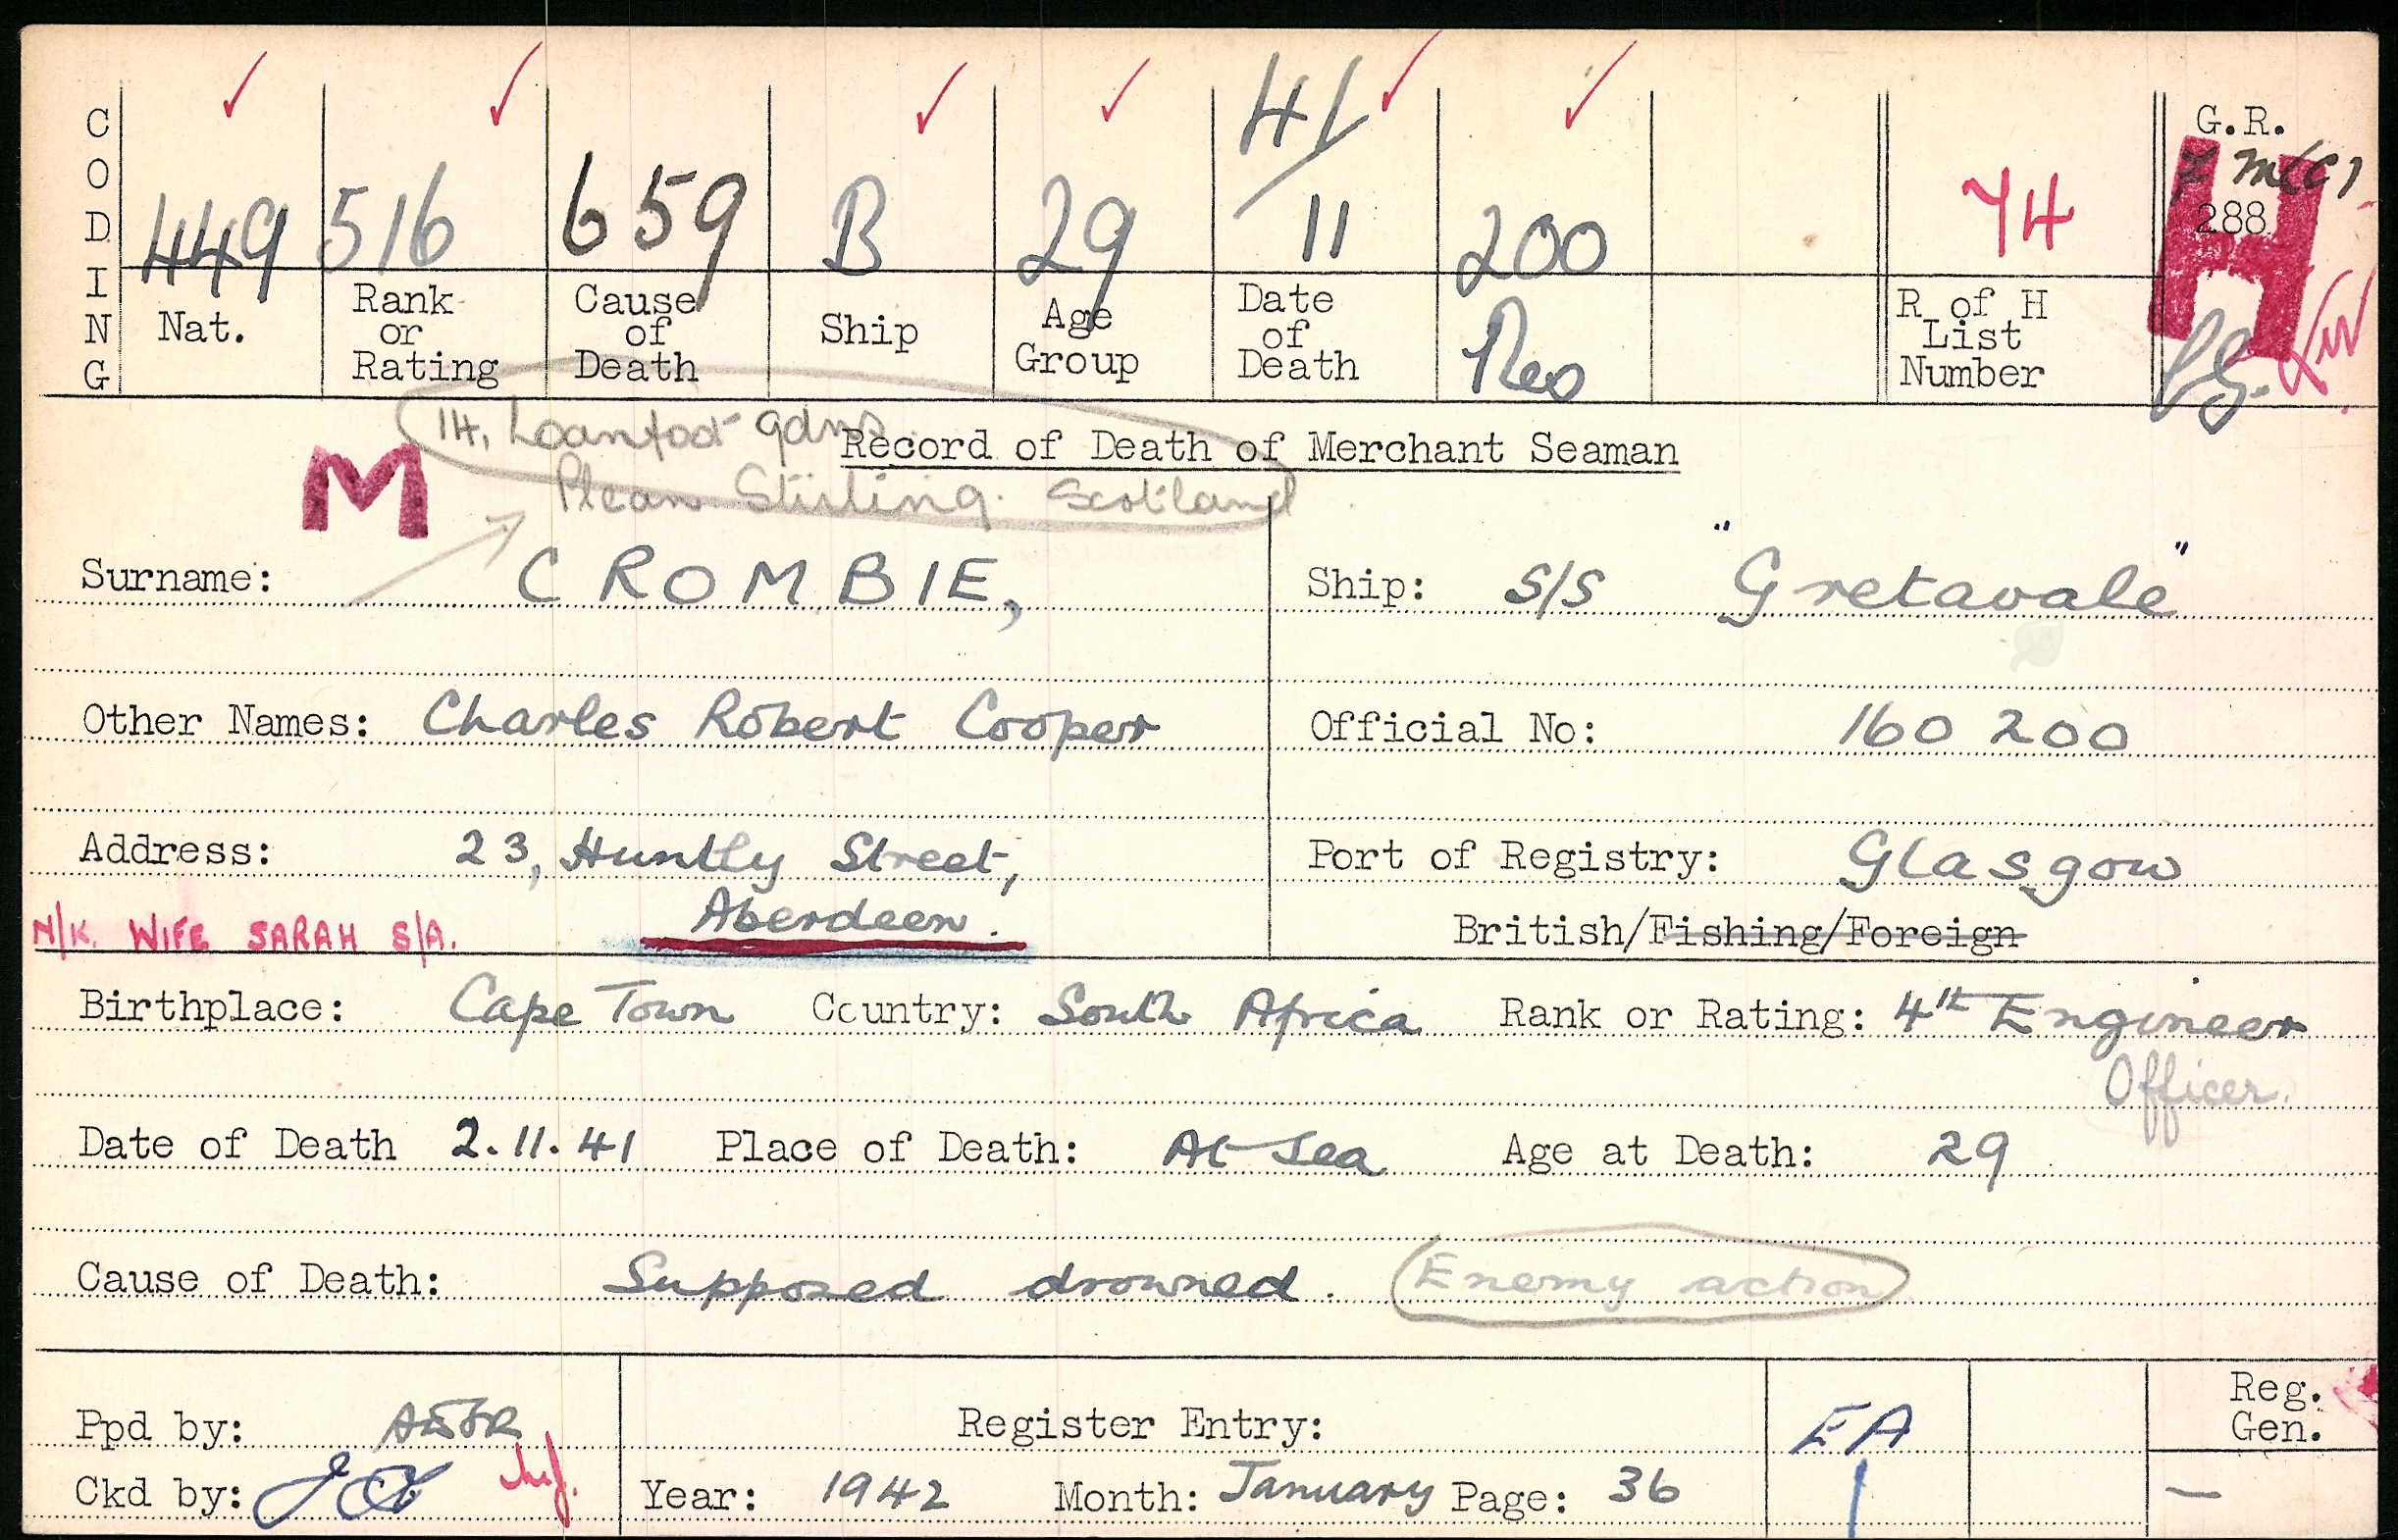 CODING
449 516 659 B 29 41/11 200 74
G.R.
288
H
Nat. Rank or Rating Cause of Death Ship Age Group Date of Death R of H List Number
14, Loanfoot gdns
Record of Death of Merchant Seaman
M
Plean Stirling. Scotland
Surname: CROMBIE, Ship: S/S "Gretavale"
Other Names: Charles Robert Cooper Official No: 160 200
Address: 23, Huntly Street, Port of Registry: Glasgow
Aberdeen. British/Fishing/Foreign
N/K. WIFE SARAH S/A.
Birthplace: Cape Town Country: South Africa Rank or Rating: 4th Engineer
Officer.
Date of Death 2.11.41 Place of Death: At Sea Age at Death: 29
Cause of Death: Supposed drowned. Enemy action
Reg. Gen.
Ppd by: Register Entry: EA
Ckd by: Year: 1942 Month: January Page: 36 —